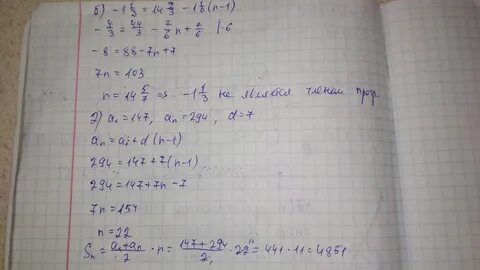 б) -1 1/3 = 14 2/3 - 1 1/6 (n-1)
- 4/3 = 44/3 - 7/6 n + 7/6 | ·6
-8 = 88 - 7n + 7
7n = 103
n = 14 5/7 => -1 1/3 не является членом прогр.
2) a₁ = 147, aₙ = 294, d = 7
aₙ = a₁ + d (n-1)
294 = 147 + 7 (n-1)
294 = 147 + 7n - 7
7n = 154
n = 22
Sₙ = (a₁ + aₙ)/2 · n = (147 + 294)/2 · 22 ¹¹ = 441 · 11 = 4851